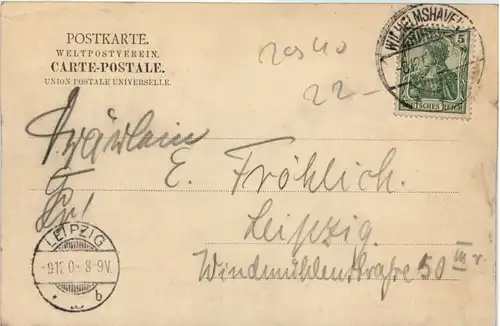 POSTKARTE.
WELTPOSTVEREIN.
CARTE-POSTALE.
UNION POSTALE UNIVERSELLE.
WILHELMSHAVEN
5
DEUTSCHES REICH
22-
Fräulein
E. Fröhlich.
Leipzig.
Windmühlenstraße 50 III r.
LEIPZIG
8-9V.
b